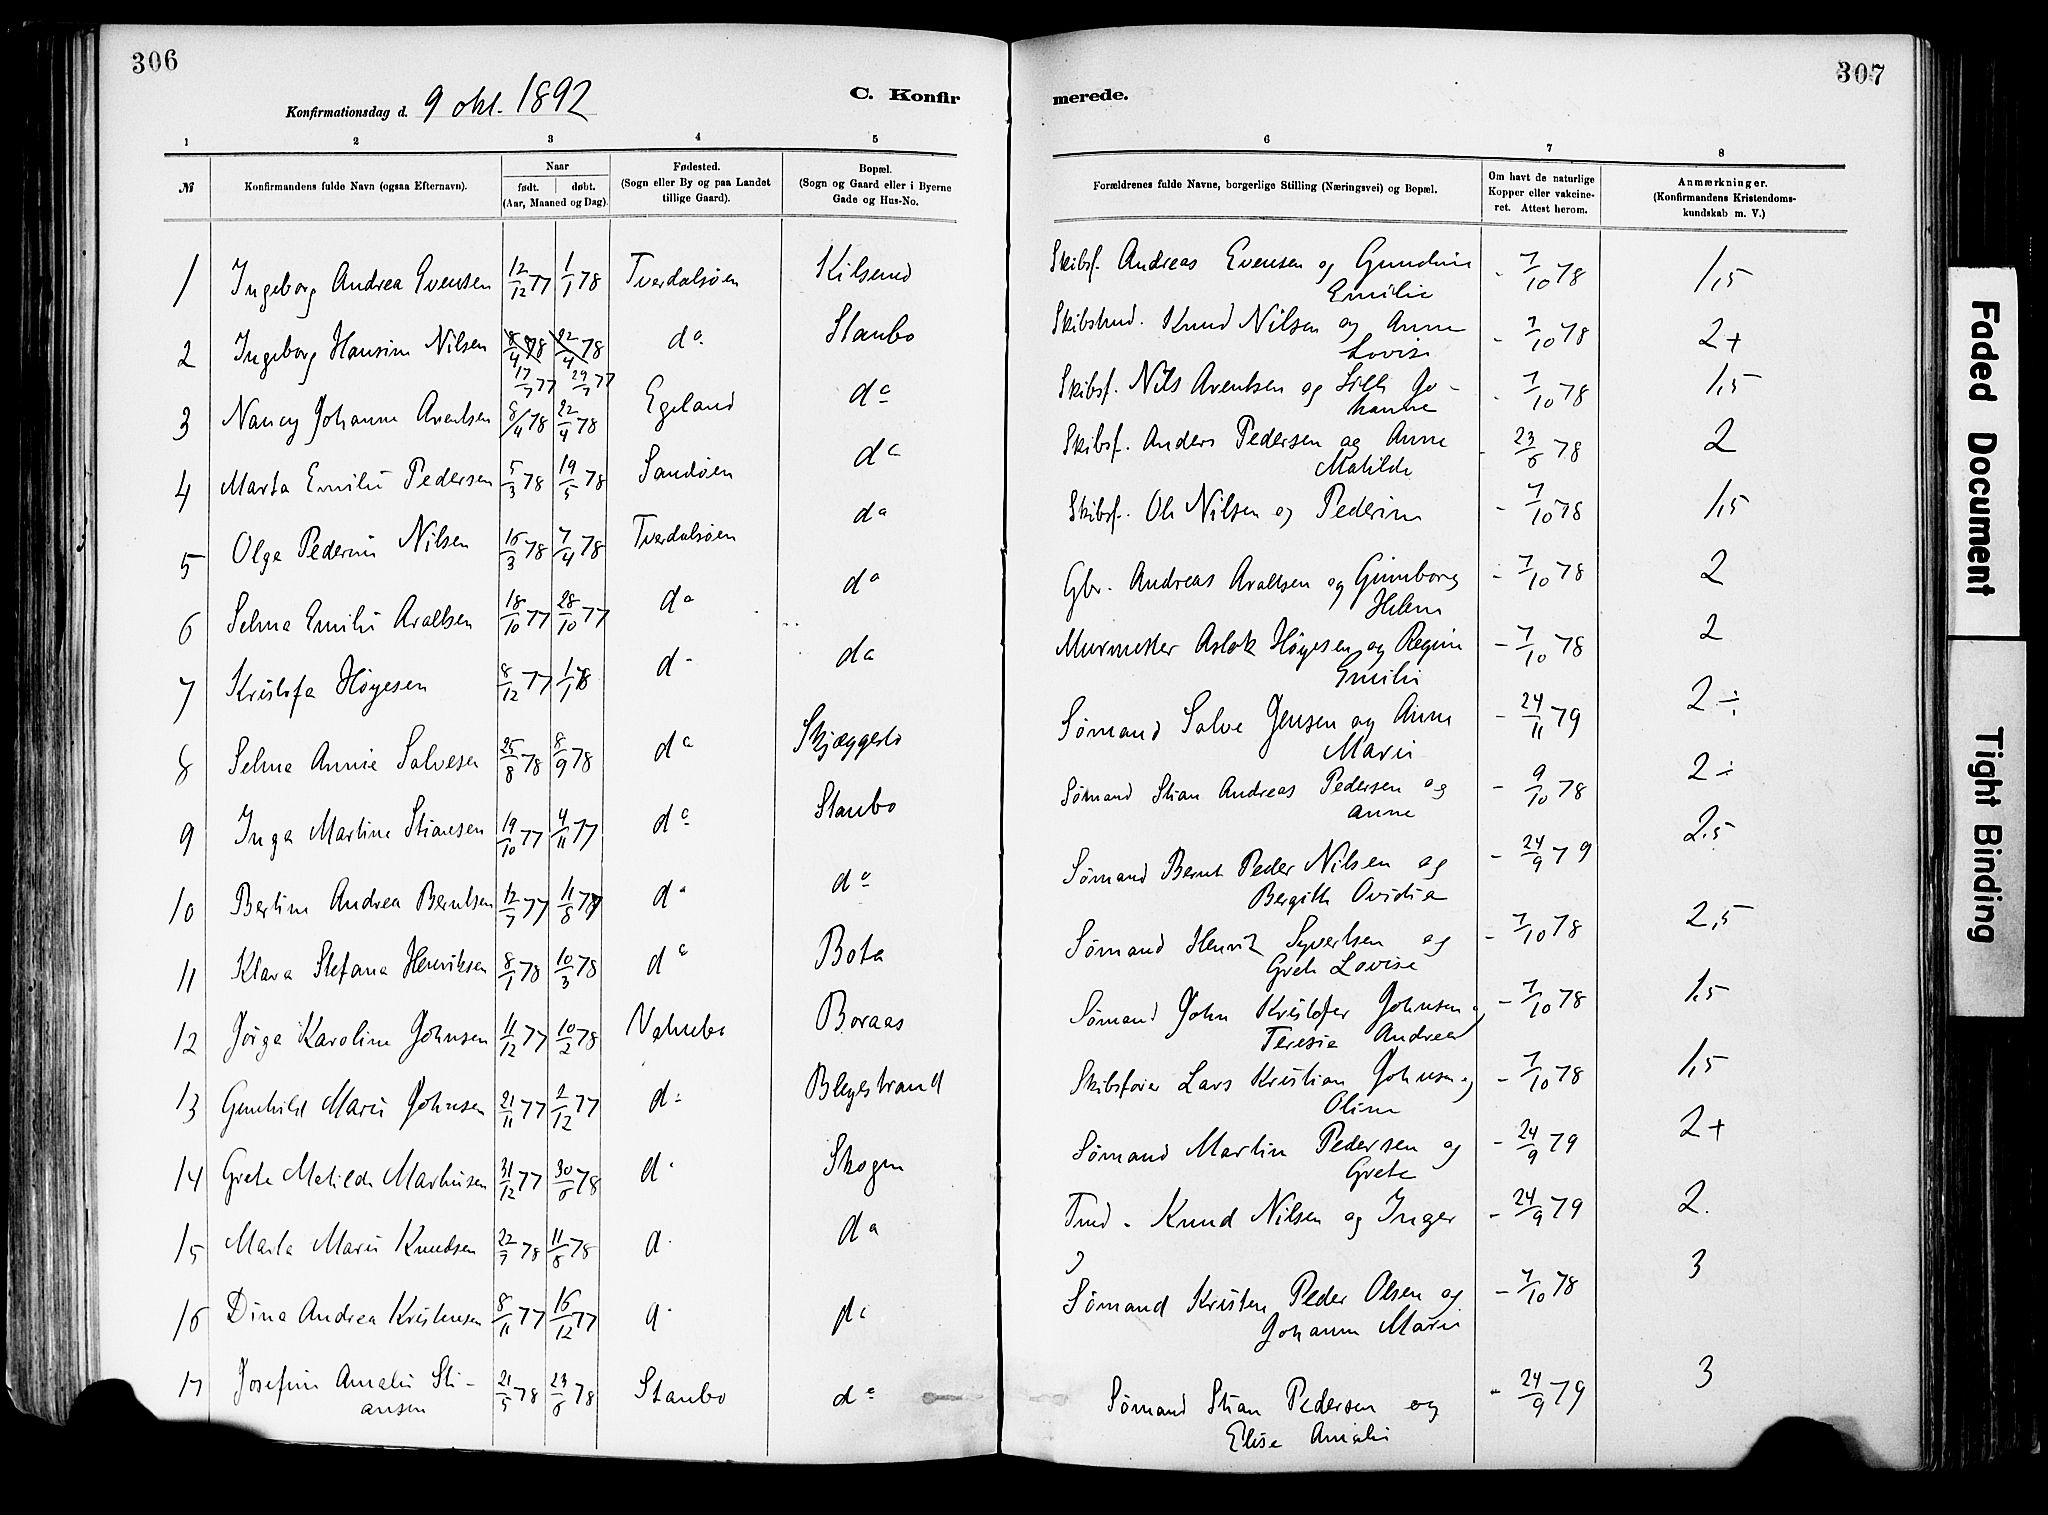 306
307
Konfirmationsdag d. 9 okt. 1892
C. Konfir
merede.
1 2 3 4 5 6 7 8
№
Konfirmandens fulde Navn (ogsaa Efternavn).
Naar
født. døbt.
(Aar, Maaned og Dag).
Fødested.
(Sogn eller By og paa Landet
tillige Gaard).
Bopæl.
(Sogn og Gaard eller i Byerne
Gade og Hus-No.
Forældrenes fulde Navne, borgerlige Stilling (Næringsvei) og Bopæl.
Om havt de naturlige
Kopper eller vakcine-
ret. Attest herom.
Anmærkninger.
(Konfirmandens Kristendoms-
kundskab m. V.)
1 Ingeborg Andrea Evensen 12/12 77 1/1 78 Tverdalsøen Kilsund Skibsf. Andreas Evensen og Gundine - 7/10 78 1,5
Emilie
2 Ingeborg Hansine Nilsen 8/4 78 22/4 78 do Staubo Skibstmd. Knud Nilsen og Anne - 7/10 78 2+
17/7 77 29/7 77 Lovise
3 Nancy Johanne Arentsen 8/4 78 22/4 78 Egeland do Skibsf. Nils Arentsen og Jo- - 7/10 78 1,5
hanne
4 Marta Emilie Pedersen 5/3 78 19/5 78 Sandøen do Skibsf. Anders Pedersen og Anne - 23/6 78 2
Matilde
5 Olga Pederine Nilsen 16/3 78 7/4 78 Tverdalsøen do Skibsf. Ole Nilsen og Pederine - 7/10 78 1,5
6 Selma Emilie Araltsen 18/10 77 28/10 77 do do Gbr. Andreas Araltsen og Gunborg - 7/10 78 2
Helene
7 Kristofa Höyesen 8/12 77 1/1 78 do do Murmester Aslak Höyesen og Regine - 7/10 78 2
Emilie
8 Selma Annie Salvesen 25/8 78 8/9 78 do Skjæggestø Sømand Salve Jensen og Anne - 24/11 79 2 ÷
Marie
9 Inga Martine Stiansen 19/10 77 4/11 77 do Staubo Sømand Stian Andreas Pedersen og - 9/10 78 2 ÷
Anne
10 Bertine Andrea Berntsen 12/7 77 11/8 77 do do Sømand Bernt Peder Nilsen og - 24/9 79 2.5
Bergitte Ovidia
11 Klara Stefana Henriksen 8/1 78 10/3 78 do Bota Sømand Henrik Syvertsen og - 7/10 78 2,5
Grete Lovise
12 Jörga Karoline Johnsen 11/12 77 10/2 78 Boraas Sømand John Kristofer Johnsen og - 7/10 78 1.5
Teresie Andrea
13 Gunhild Marie Johnsen 21/11 77 2/12 77 do Blegestrand Skibsfører Lars Kristian Johnsen og - 7/10 78 1,5
Oline
14 Grete Matilde Martinsen 31/12 77 30/6 78 do Skogen Sømand Martin Pedersen og - 24/9 79 2+
Grete
15 Marta Marie Knudsen 22/7 78 11/8 78 do do Tmd. Knud Nilsen og Inger - 24/9 79 2.
16 Dina Andrea Kristensen 8/11 77 16/12 77 do do Sømand Kristen Peder Olsen og - 7/10 78 3
Johanne Marie
17 Josefine Amalie Sti- 21/5 78 23/6 78 Staubo do Sømand Stian Pedersen og - 24/9 79 3
ansen Elise Amalie
Faded Document
Tight Binding